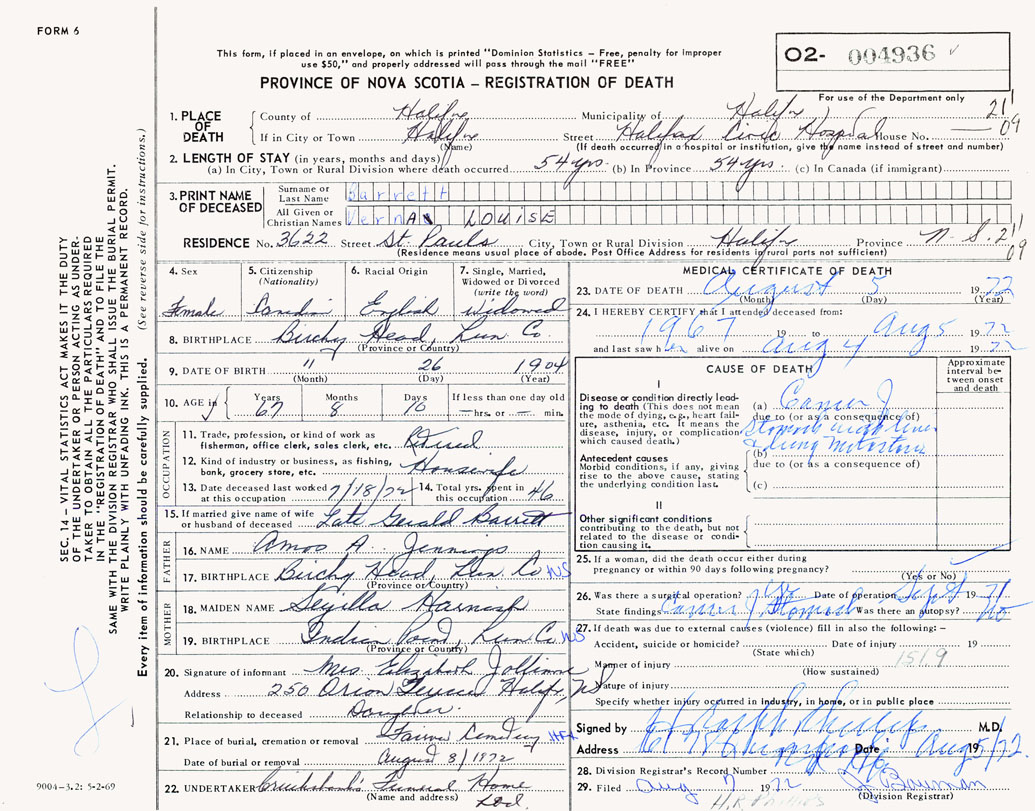 FORM 6
This form, if placed in an envelope, on which is printed "Dominion Statistics – Free, penalty for improper
use $50," and properly addressed will pass through the mail "FREE"
PROVINCE OF NOVA SCOTIA – REGISTRATION OF DEATH
O2- 004936
For use of the Department only
1. PLACE OF DEATH
County of Halifax Municipality of Halifax 21
If in City or Town Halifax Street Halifax Civic Hospital House No. — 09
(Name) (If death occurred in a hospital or institution, give the name instead of street and number)
2. LENGTH OF STAY (in years, months and days)
(a) In City, Town or Rural Division where death occurred 54 yrs. (b) In Province 54 yrs. (c) In Canada (if immigrant)
3. PRINT NAME OF DECEASED
Surname or Last Name Barrett
All Given or Christian Names Verna LOUISE
RESIDENCE No. 3622 Street St Pauls City, Town or Rural Division Halifax Province N.S. 21
(Residence means usual place of abode. Post Office Address for residents in rural parts not sufficient) 09
4. Sex Female
5. Citizenship (Nationality) Canadian
6. Racial Origin English
7. Single, Married, Widowed or Divorced (write the word) Widowed
8. BIRTHPLACE Birchy Head, Lun Co
(Province or Country)
9. DATE OF BIRTH 11 26 1904
(Month) (Day) (Year)
10. AGE in Years 67 Months 8 Days 10 If less than one day old
— hrs. or — min.
OCCUPATION
11. Trade, profession, or kind of work as
fisherman, office clerk, sales clerk, etc. Retired
12. Kind of industry or business, as fishing,
bank, grocery store, etc. Housewife
13. Date deceased last worked at this occupation 7/18/72 14. Total yrs. spent in this occupation 46
15. If married give name of wife
or husband of deceased Late Gerald Barrett
FATHER
16. NAME Amos A. Jennings
17. BIRTHPLACE Birchy Head, Lun Co NS
(Province or Country)
MOTHER
18. MAIDEN NAME Harnish
19. BIRTHPLACE Indian Point, Lun Co. NS
(Province or Country)
20. Signature of informant Mrs. Elizabeth
Address 250 Orion Halifax, NS
Relationship to deceased Daughter.
21. Place of burial, cremation or removal Cemetery
Date of burial or removal August 8/1972
22. UNDERTAKER Cruikshank's Funeral Home
(Name and address) Ltd.
MEDICAL CERTIFICATE OF DEATH
23. DATE OF DEATH August 5 1972
(Month) (Day) (Year)
24. I HEREBY CERTIFY that I attended deceased from:
1967 19 to Aug 5 1972
and last saw her alive on Aug 4 1972
CAUSE OF DEATH
Approximate interval between onset and death
I
Disease or condition directly leading to death (This does not mean the mode of dying, e.g., heart failure, asthenia, etc. It means the disease, injury, or complication which caused death.)
(a) Cancer of
due to (or as a consequence of)
Stomach with liver
(b) & lung metastases
due to (or as a consequence of)
Antecedent causes
Morbid conditions, if any, giving rise to the above cause, stating the underlying condition last.
(c)
II
Other significant conditions
contributing to the death, but not related to the disease or condition causing it.
25. If a woman, did the death occur either during
pregnancy or within 90 days following pregnancy?
(Yes or No)
26. Was there a surgical operation? Yes Date of operation Sept 1971
State findings Cancer of Stomach Was there an autopsy? No
27. If death was due to external causes (violence) fill in also the following: –
Accident, suicide or homicide? Date of injury 19
(State which) 151.9
Manner of injury
(How sustained)
Nature of injury
Specify whether injury occurred in industry, in home, or in public place
Signed by M.D.
Address Date Aug 5/1972
28. Division Registrar's Record Number
29. Filed Aug 7 1972
(Division Registrar)
SEC. 14 – VITAL STATISTICS ACT MAKES IT THE DUTY
OF THE UNDERTAKER OR PERSON ACTING AS UNDER-
TAKER TO OBTAIN ALL THE PARTICULARS REQUIRED
IN THE "REGISTRATION OF DEATH" AND TO FILE THE
SAME WITH THE DIVISION REGISTRAR WHO SHALL ISSUE THE BURIAL PERMIT.
WRITE PLAINLY WITH UNFADING INK. THIS IS A PERMANENT RECORD.
Every item of information should be carefully supplied. (See reverse side for instructions.)
9004–3.2: 5-2-69